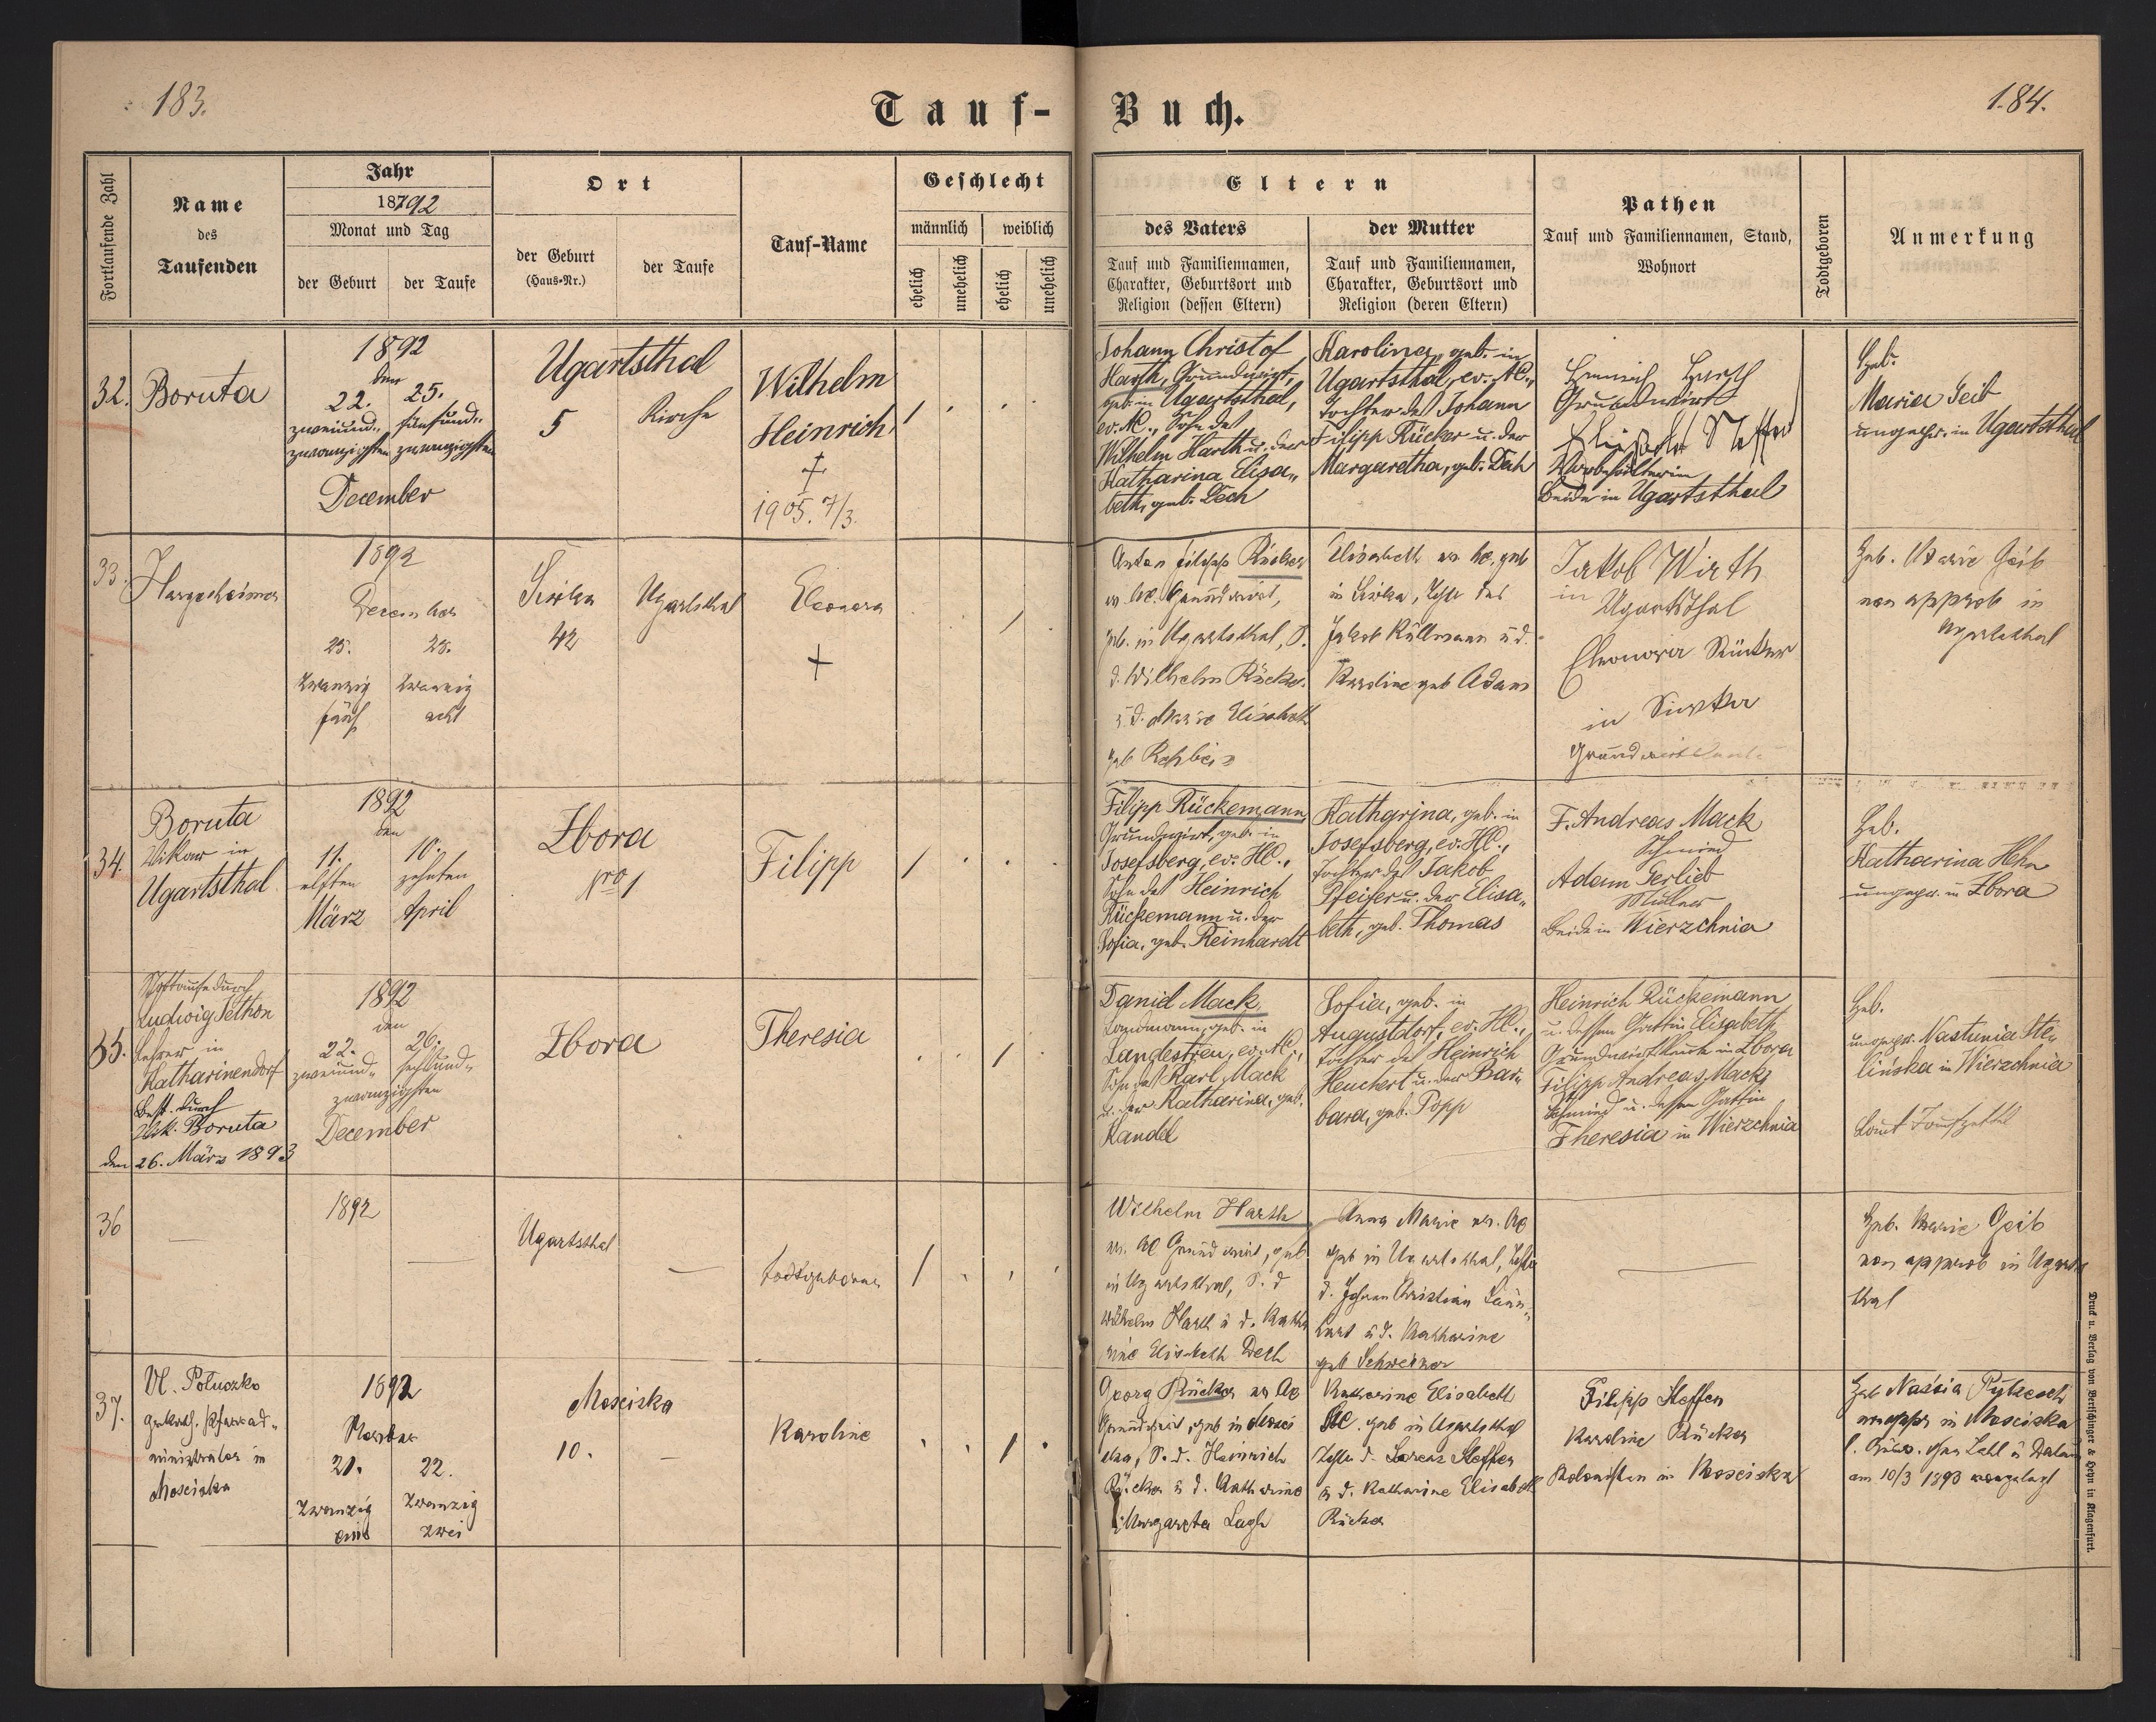 183.
Tauf-
Buch.
184.
Fortlaufende Zahl
Name
des
Taufenden
Jahr
1892
Monat und Tag
der Geburt
der Taufe
Ort
der Geburt
(Haus-Nr.)
der Taufe
Tauf-Name
Geschlecht
männlich
weiblich
ehelich
unehelich
ehelich
unehelich
Eltern
des Vaters
Tauf und Familiennamen,
Charakter, Geburtsort und
Religion (dessen Eltern)
der Mutter
Tauf und Familiennamen,
Charakter, Geburtsort und
Religion (deren Eltern)
Pathen
Tauf und Familiennamen, Stand,
Wohnort
Todtgeboren
Anmerkung
32.
Boruta
1892
den
22. 25.
zweiund„ fünfund„
zwanzigsten zwanzigsten
December
Ugartsthal
5
Kirche
Wilhelm
Heinrich
†
1905. 7/3.
Johann Christof
Harth, Grundwirt,
geb. in Ugartsthal,
ev. AC., Sohn des
Wilhelm Harth u. der
Katharina Elisa„
beth, geb. Dech
Karolina, geb. in
Ugartsthal, ev. AC.,
Tochter des Johann
Filipp Rücker u. der
Margaretha, geb. Dech
Heinrich Harth
Grundwirt
beide in Ugartsthal
Heb.
Maria Geib
ungepr. in Ugartsthal
33.
Hargesheimer
1892
December
25. 28.
Zwanzig Zwanzig
fünf acht
Siwka
42
Ugartsthal
Eleonora
†
Anton Filipp Rücker
ev. AC. Grundwirt,
geb. in Ugartsthal, S.
d. Wilhelm Rücker
u. d. Marie Elisabeth
geb
Elisabeth ev. AC. geb
in Siwka, Tochter des
Jakob Küllmann u d.
Karoline geb Adam
Jakob Wirth
in Ugartsthal
Eleonora Rücker
in Siwka
Heb. Marie Geib
non approb in
Ugartsthal
34.
Boruta
Vikar in
Ugartsthal
1892
den
11. 10.
elften zehnten
März April
Zbora
Nro 1
Filipp
Filipp Rückemann,
Grundwirt, geb. in
Josefsberg, ev. HC.,
Sohn des Heinrich
Rückemann u. der
Sofia, geb. Reinhardt
Katharina, geb. in
Josefsberg, ev. HC.,
Tochter des Jakob
Pfeifer u. der Elisa„
beth, geb. Thomas
F. Andreas Mack
Schmied
Adam Gerlieb
Müller
beide in Wierzchnia
Heb.
Katharina Hehn
ungepr. in Zbora
35.
Nottaufe durch
Ludwig Pethon
Lehrer in
Katharinendorf
Best. durch
Vik. Boruta
den 26. März 1893
1892
den
22. 26.
zweiund„ sechsund„
zwanzigsten
December
Zbora
Theresia
Daniel Mack
Landmann, geb. in
Landestreu, ev. AC.,
Sohn des Karl Mack
u. der Katharina, geb.
Kandel
Sofia, geb. in
Augustdorf, ev. HC.,
Tochter des Heinrich
Heuchert u. der Bar„
bara, geb. Popp
Heinrich Rückemann
u. dessen Gattin Elisabeth,
Grundwirtsleute in Zbora
Filipp Andreas Mack,
Schmied u. dessen Gattin
Theresia in Wierzchnia
Heb.
ungepr. Nastunia Ste„
lińska in Wierzchnia
Laut Taufzettel
36
1892
Ugartsthal
todtgeboren
Wilhelm Harth
ev. AC Grundwirt, geb
in Ugartsthal, S. d
Wilhelm Harth u d. Katha
rine Elisabeth Dech
Anna Marie ev. AC
geb in Ugartsthal, Tochter
d. Johann Christian
u d. Katharine
geb Schweizer
Heb. Marie Geib
non approb in Ugarts
thal
37.
1892
21. 22.
Zwanzig Zwanzig
eins zwei
Mosciska
10.
Karoline
Georg Rücker ev AC
Grundwirt, geb in Mosci
ska, S. d. Heinrich
Rücker u d. Katharine
Margareta
Katharine Elisabeth
AC. geb in Ugartsthal
Tochter d. Lorenz Steffen
u d. Katharine Elisabeth
Rücker
Filipp Steffen
Karoline Rücker
Kolonisten in Mosciska
in Mosciska
am 10/3 1893
Druck u. Verlag von Bertschinger & Heyn in Klagenfurt.